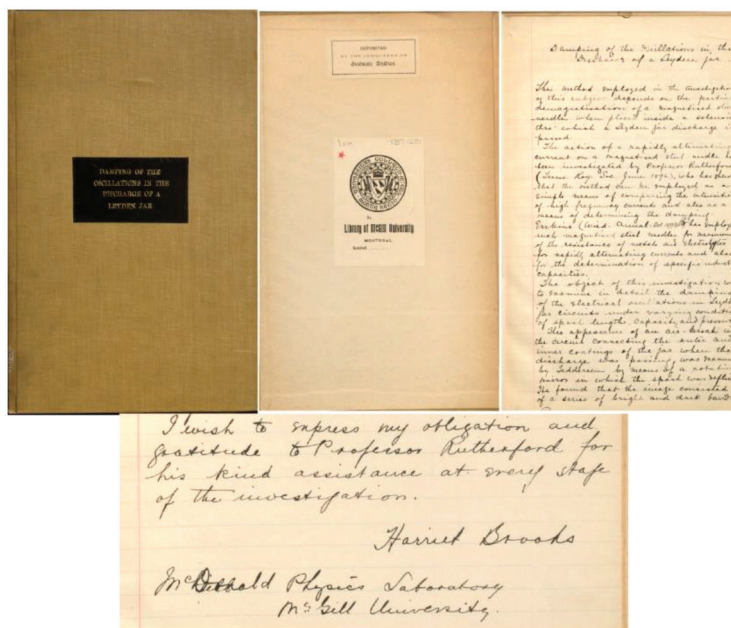 DAMPING OF THE
OSCILLATIONS IN THE
DISCHARGE OF A
LEYDEN JAR
DEPOSITED
BY THE COMMITTEE ON
Graduate Studies
Library of McGill University
MONTREAL
Damping of the Oscillations in the
Discharge of a Leyden jar
The method employed in the investigation
of this subject depends on the partial
demagnetisation of a magnetised steel
needle when placed inside a solenoid
thro' which a Leyden jar discharge is
passed.
The action of a rapidly alternating
current on a magnetised steel needle has
been investigated by Professor Rutherford
who has shown
that the method can be employed as a
simple means of comparing the intensities
of high frequency currents and also as a
means of determining the damping
Erskine has employed
such magnetised steel needles for
of the resistance of metals and electrolytes
for rapidly alternating currents and also
for the determination of specific inductive
capacities.
The object of this investigation
to examine in detail the damping
of the electrical oscillations in Leyden
jar circuits under varying conditions
of spark length, capacity and
The appearance of an air-break in
the circuit connecting the outer and
inner coatings of the jar when the
discharge was passing, was
by Feddersen by means of a rotating
mirror in which the spark was
He found that the image consisted
of a series of bright and dark
I wish to express my obligation and
gratitude to Professor Rutherford for
his kind assistance at every stage
of the investigation.
Harriet Brooks
Physics Laboratory
McGill University.